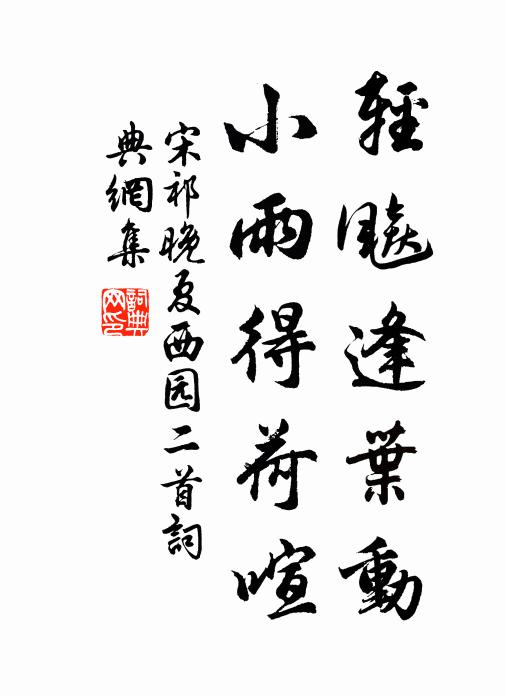 輕飈逢葉動
小雨得荷喧
宋祁晚夏西园二首詞
典網集
詞典網印